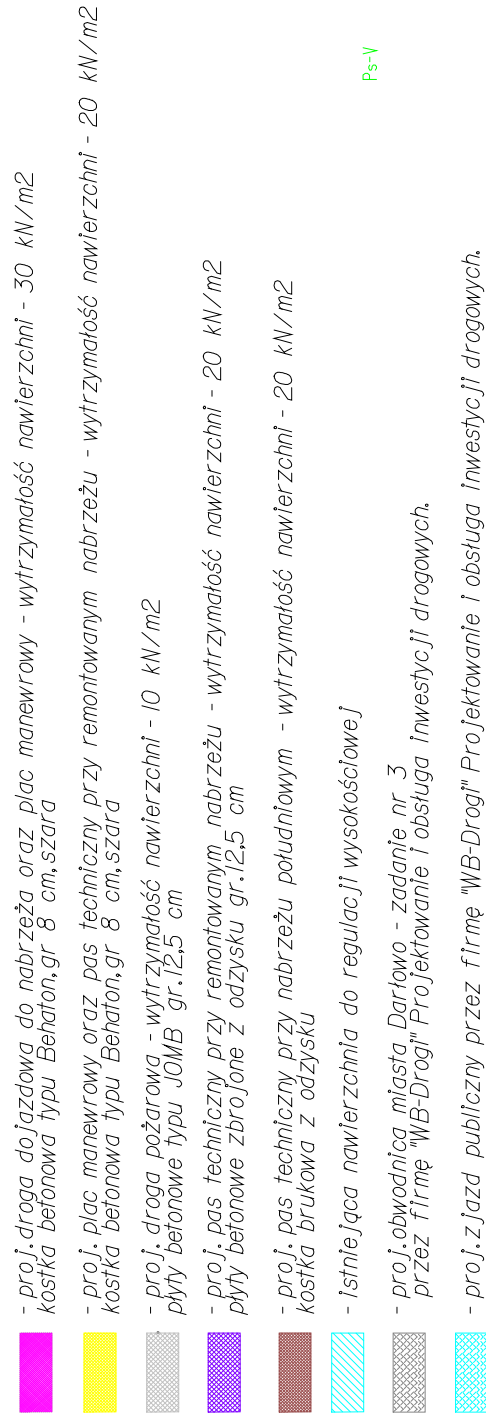 - proj. droga dojazdowa do nabrzeża oraz plac manewrowy - wytrzymałość nawierzchni - 30 kN/m2
kostka betonowa typu Behaton,gr 8 cm,szara
- proj. plac manewrowy oraz pas techniczny przy remontowanym nabrzeżu - wytrzymałość nawierzchni - 20 kN/m2
kostka betonowa typu Behaton,gr 8 cm,szara
- proj. droga pożarowa - wytrzymałość nawierzchni - 10 kN/m2
płyty betonowe typu JOMB gr.12,5 cm
- proj. pas techniczny przy remontowanym nabrzeżu - wytrzymałość nawierzchni - 20 kN/m2
płyty betonowe zbrojone z odzysku gr.12,5 cm
- proj. pas techniczny przy nabrzeżu południowym - wytrzymałość nawierzchni - 20 kN/m2
kostka brukowa z odzysku
- istniejąca nawierzchnia do regulacji wysokościowej
- proj.obwodnica miasta Darłowo - zadanie nr 3
przez firmę "WB-Drogi" Projektowanie i obsługa inwestycji drogowych.
- proj.zjazd publiczny przez firmę "WB-Drogi" Projektowanie i obsługa inwestycji drogowych.
Ps-V